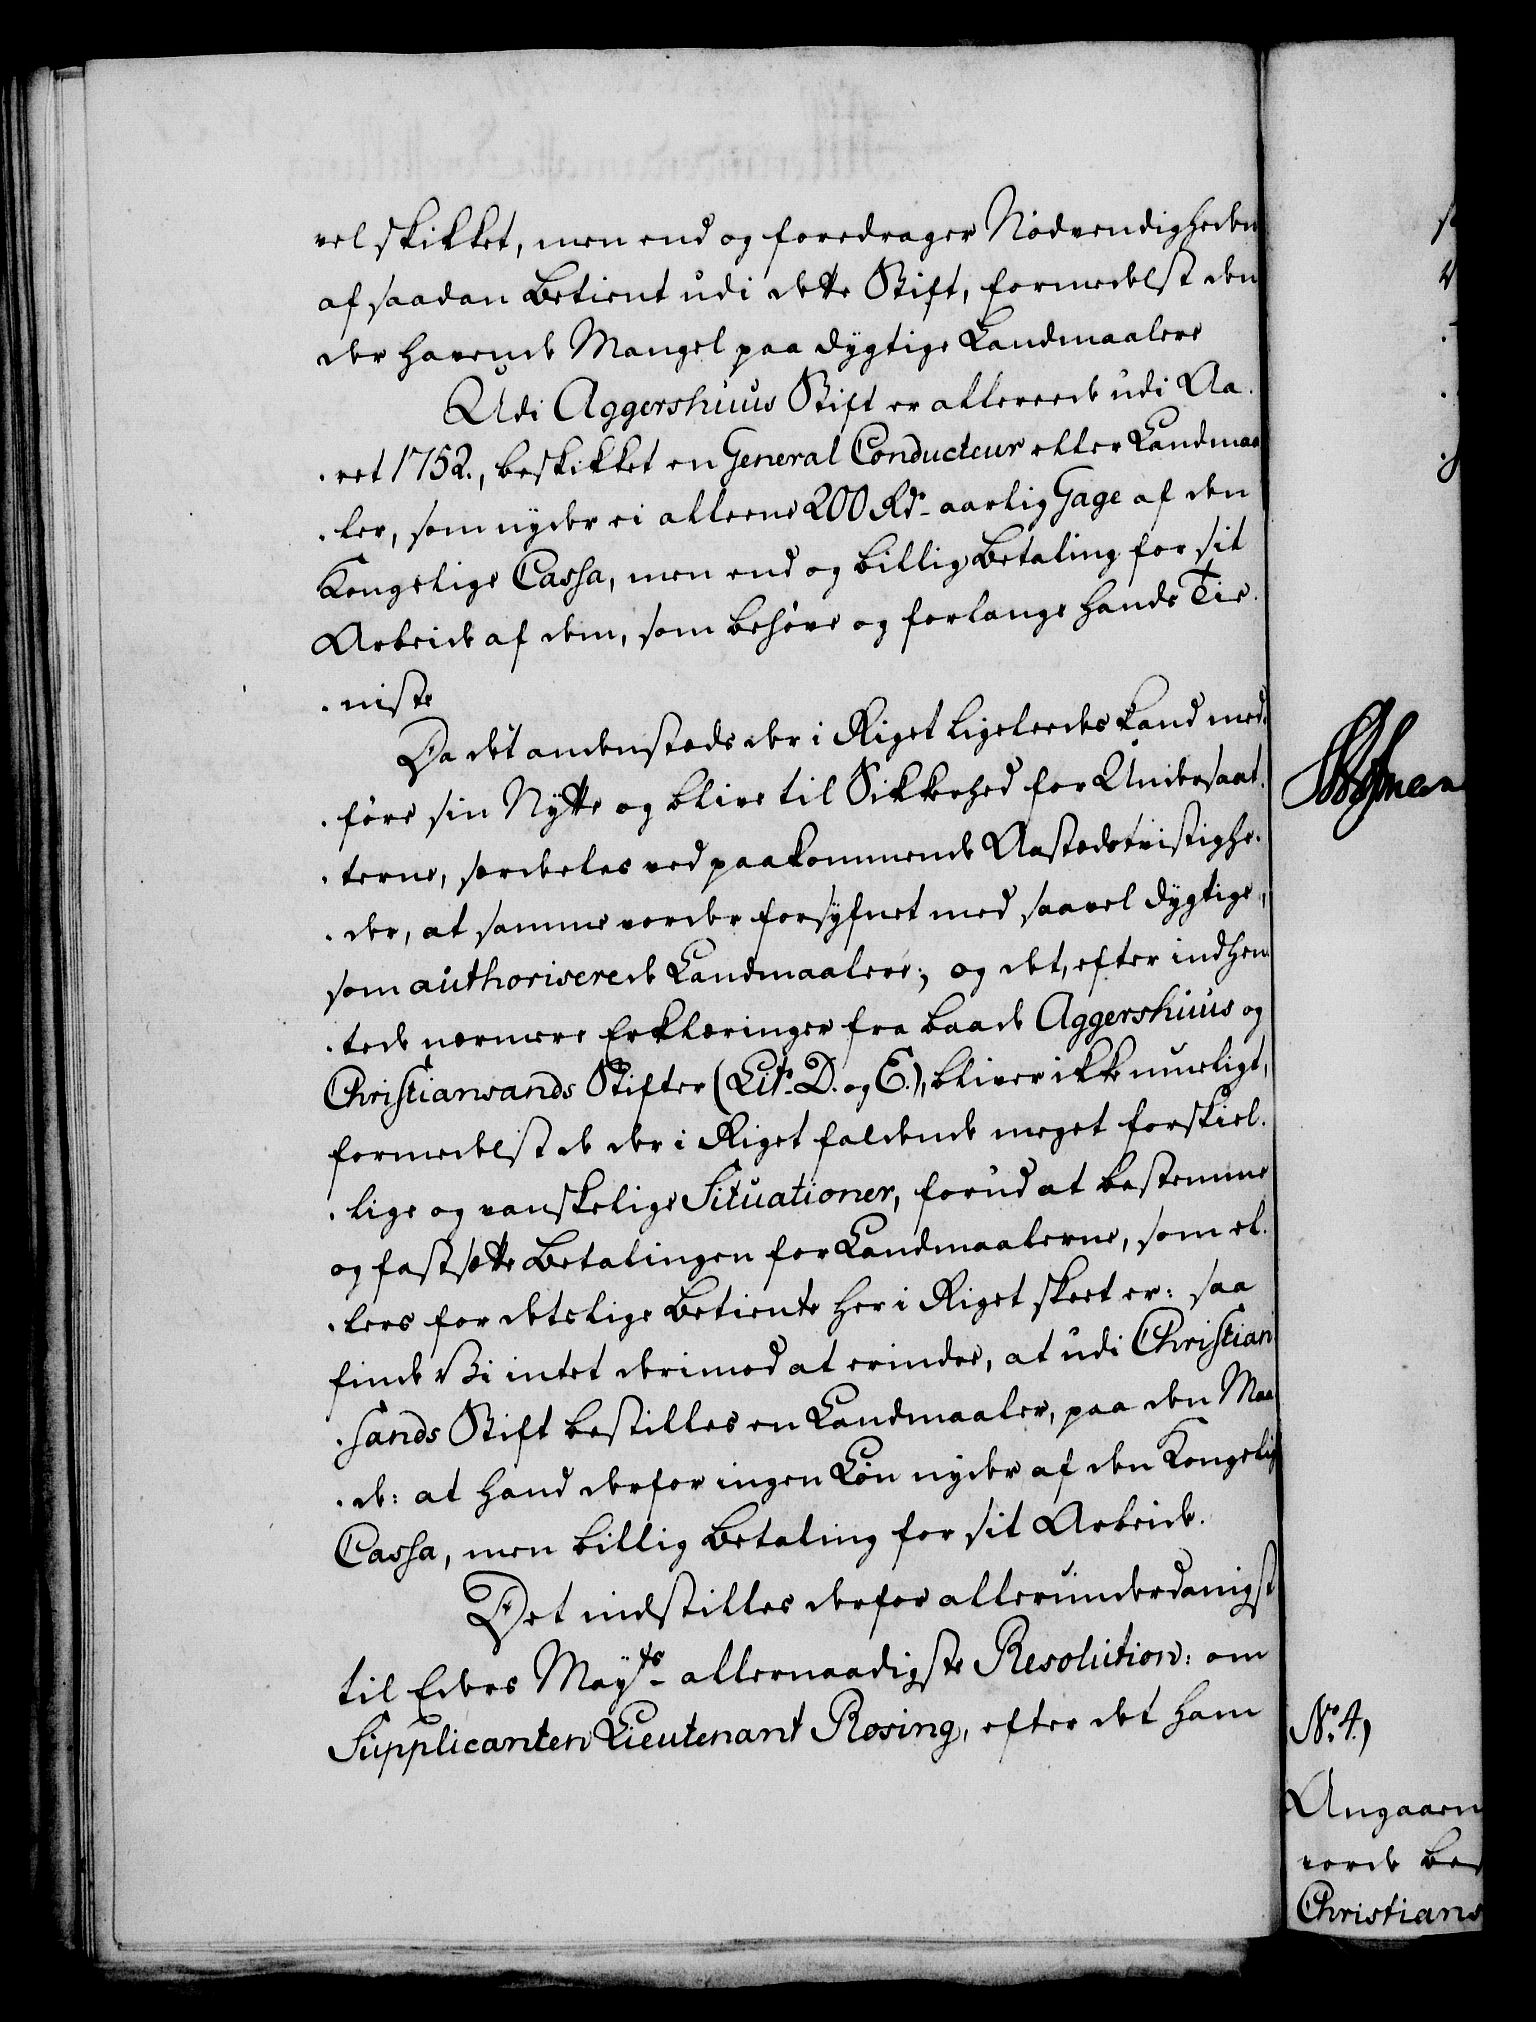 vel skikket, men end og foredrager Nödvendigheden
af saadan Betient udi dette Stift, formedelst den
der havende Mangel paa dygtige Landmaalere
Udi Aggershuus Stift er allereede udi Aa-
-ret 1752., beskikket en General Conducteur eller Landmaa
-ler, som nyder ei alleene 200 Rdr aarlig Gage af den
Kongelige Cassa, men end og billig Betaling for sit
Arbeide af dem, som behöve og forlange hands Tie-
-niste
Da det andenstæds der i Riget ligeleedes kand med-
-före sin Nytte og blive til Sikkerhed for Undersaat-
-terne, særdeles ved paakommende Aastædstvistighe-
-der, at samme vorder forsÿfnet med saavel dygtige,
som authoriserede Landmaalere; og det, efter indhen
-tede nærmere Erklæringer fra baade Aggershuus og
Christiansands Stifter (Litr. D. og E.), bliver ikke mueligt,
formedelst de der i Riget faldende meget forskiel-
-lige og vanskelige Situationer, forud at bestemme
og fastsætte Betalingen for Landmaalerne, som el-
-lers for detslige Betiente her i Riget skeet er: saa
finde Vi intet derimod at erindre, at udi Christian
-sands Stift bestilles en Landmaaler, paa den Maa
-de: at hand derfor ingen Lön nyder af den Kongelig
Cassa, men billig Betaling for sit Arbeide.
Det indstilles derfor allerunderdanigst
til Eders Mayts allernaadigste Resolution: om
Supplicanten Lieutenant Rosing, efter det ham
No. 4,)
Angaaen
vorde bes
Christians